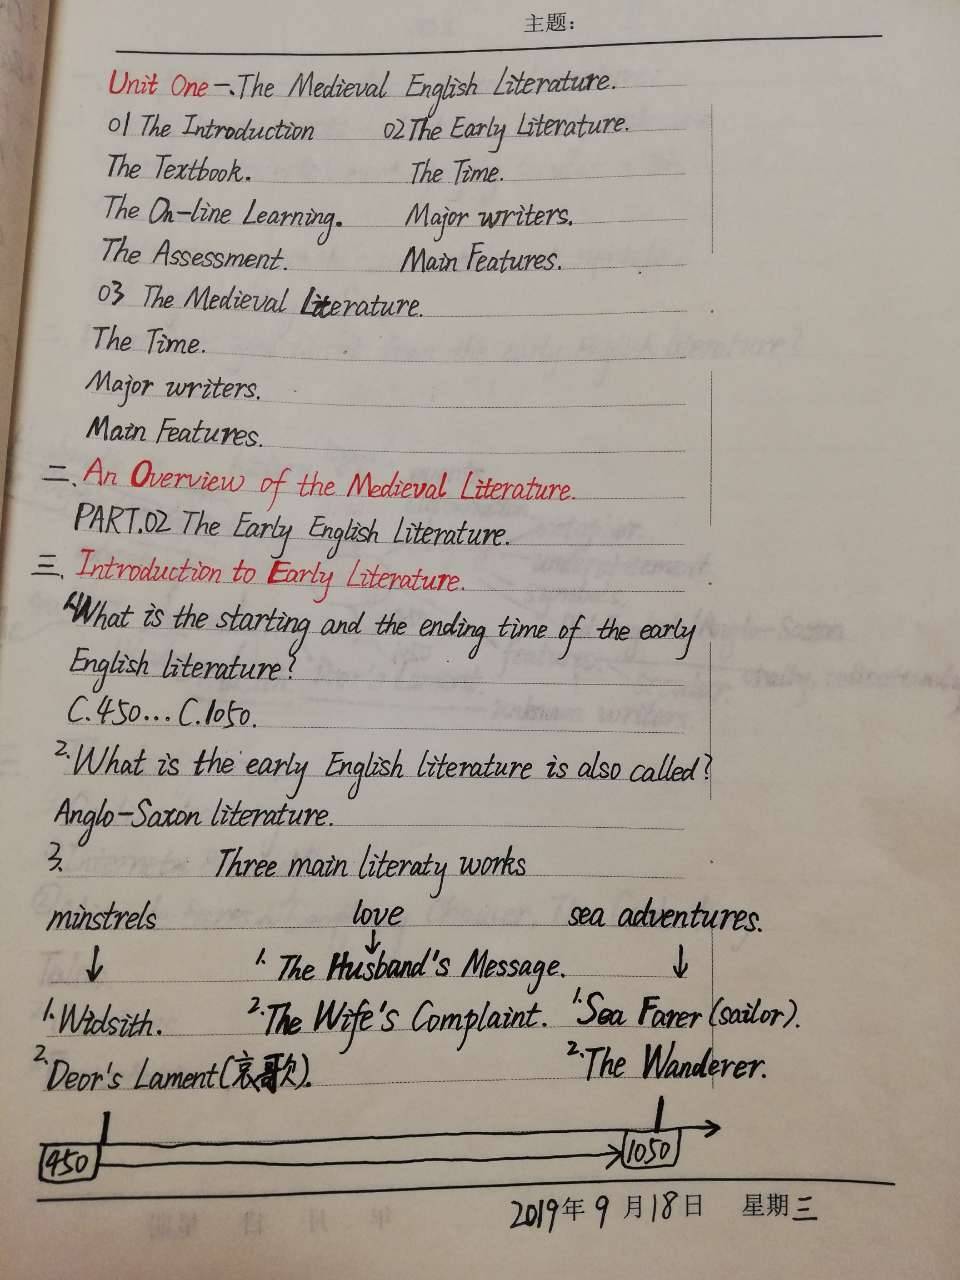 主题:
Unit One 一. The Medieval English Literature.
01 The Introduction 02 The Early Literature.
The Textbook. The Time.
The On-line Learning. Major writers.
The Assessment. Main Features.
03 The Medieval Literature.
The Time.
Major writers.
Main Features.
二. An Overview of the Medieval Literature.
PART.02 The Early English Literature.
三. Introduction to Early Literature.
1. What is the starting and the ending time of the early
English literature?
C.450...C.1050.
2. What is the early English literature is also called?
Anglo-Saxon literature.
3. Three main literaty works
minstrels love sea adventures.
↓ ↓ ↓
1. The Husband's Message.
1. Widsith. 2. The Wife's Complaint. 1. Sea Farer (sailor).
2. Deor's Lament (哀歌). 2. The Wanderer.
450 1050
2019年 9 月 18 日 星期三